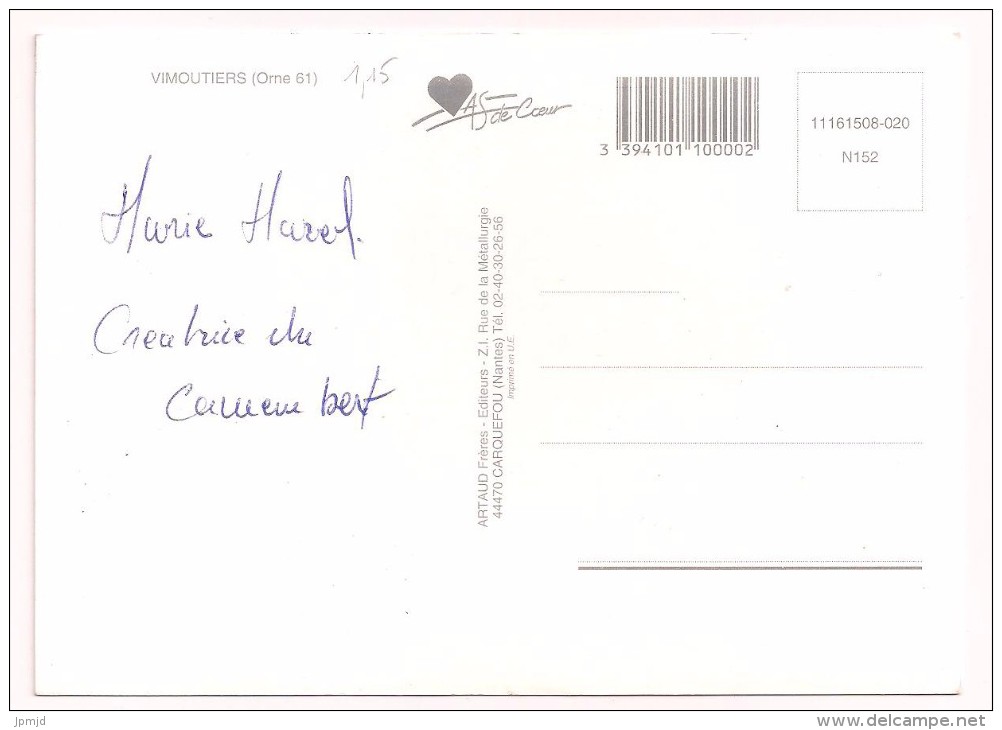 VIMOUTIERS (Orne 61)
1,15
AS de Cœur
3 394101 100002
11161508-020
N152
Marie Harel.
Creatrice du
Camembert
ARTAUD Frères - Editeurs - Z.I. Rue de la Métallurgie
44470 CARQUEFOU (Nantes) Tél. 02-40-30-26-56
Imprimé en U.E.
Jpmjd
www.delcampe.net